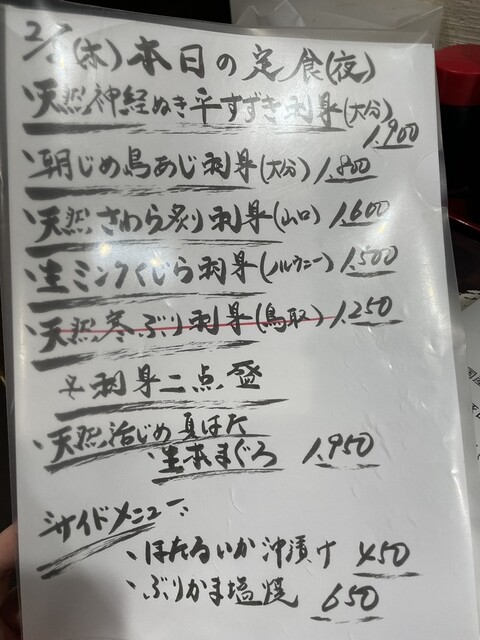 2/5(木)本日の定食(夜)
・天然神経ぬき平すずき刺身(大分)
1,900
・朝じめ島あじ刺身(大分) 1,800
・天然さわら炙り刺身(山口) 1,600
・生ミンクくじら刺身(ノルウェー) 1,500
・天然寒ぶり刺身(鳥取) 1,250
☆刺身二点盛
・天然活じめ夏はた
・生本まぐろ 1,950
サイドメニュー
・ほたるいか沖漬け 450
・ぶりかま塩焼 650